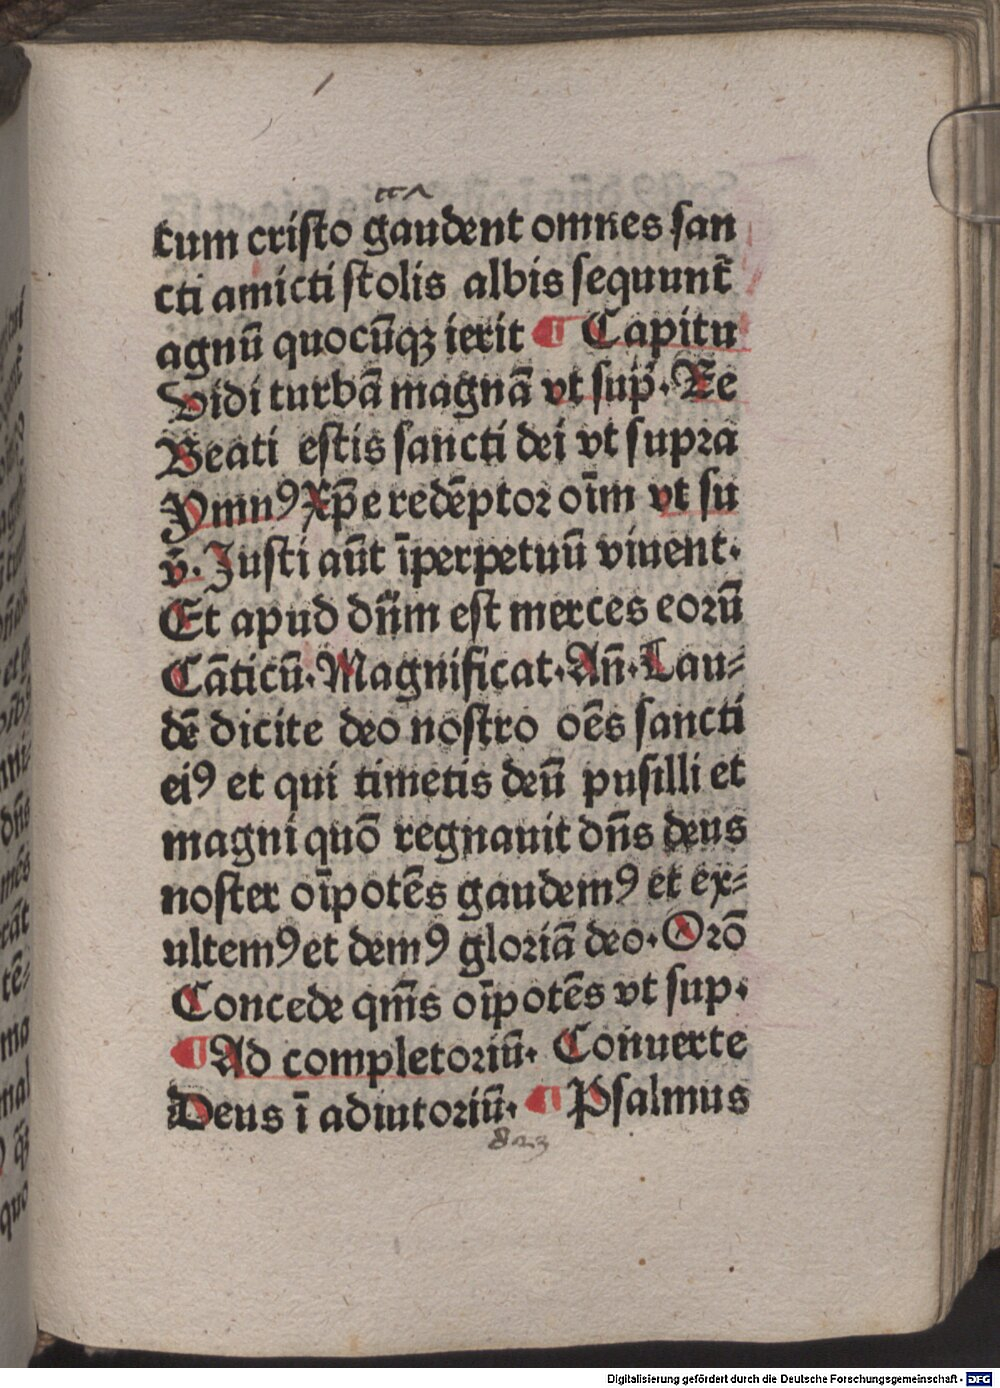 cum cristo gaudent omnes san
cti amicti stolis albis sequunt̃
agnū quocūqꝫ ierit ¶ Capitu
Vidi turbā magnā vt sup̄. Re
Beati estis sancti dei vt supra
Ymnꝰ Xp̄e redēptor oīm vt su
v̄. Justi aūt īperpetuū viuent.
Et apud dn̄m est merces eorū
Cāticū. Magnificat. An̄. Lau⸗
dē dicite deo nostro oēs sancti
eiꝰ et qui timetis deū pusilli et
magni quō regnauit dn̄s deus
noster oīpotēs gaudemꝰ et ex⸗
ultemꝰ et demꝰ gloriā deo. Orō
Concede qm̄s oīpotēs vt sup.
¶ Ad completoriū. Conuerte
Deus ī adiutoriū. ¶ Psalmus
823
Digitalisierung gefördert durch die Deutsche Forschungsgemeinschaft - DFG